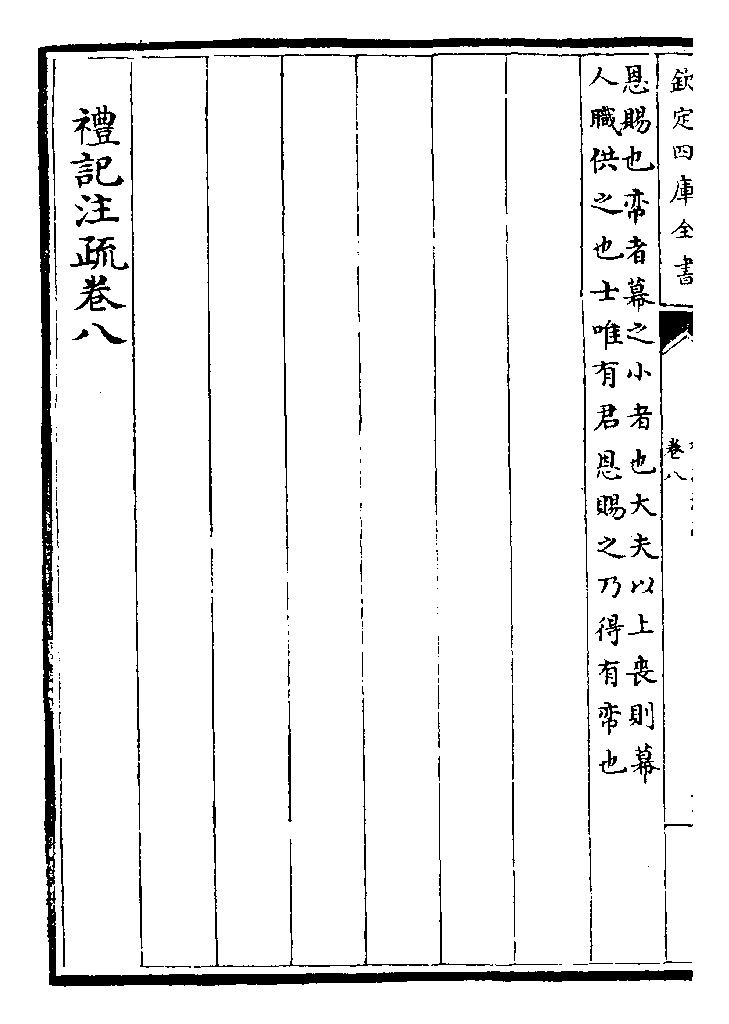 欽定四庫全書
卷八
恩賜也帟者幕之小者也大夫以上喪則幕
人職供之也士唯有君恩賜之乃得有帟也
禮記注疏卷八